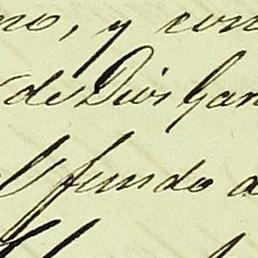 no, y con
de Dios Gar
l fundo a